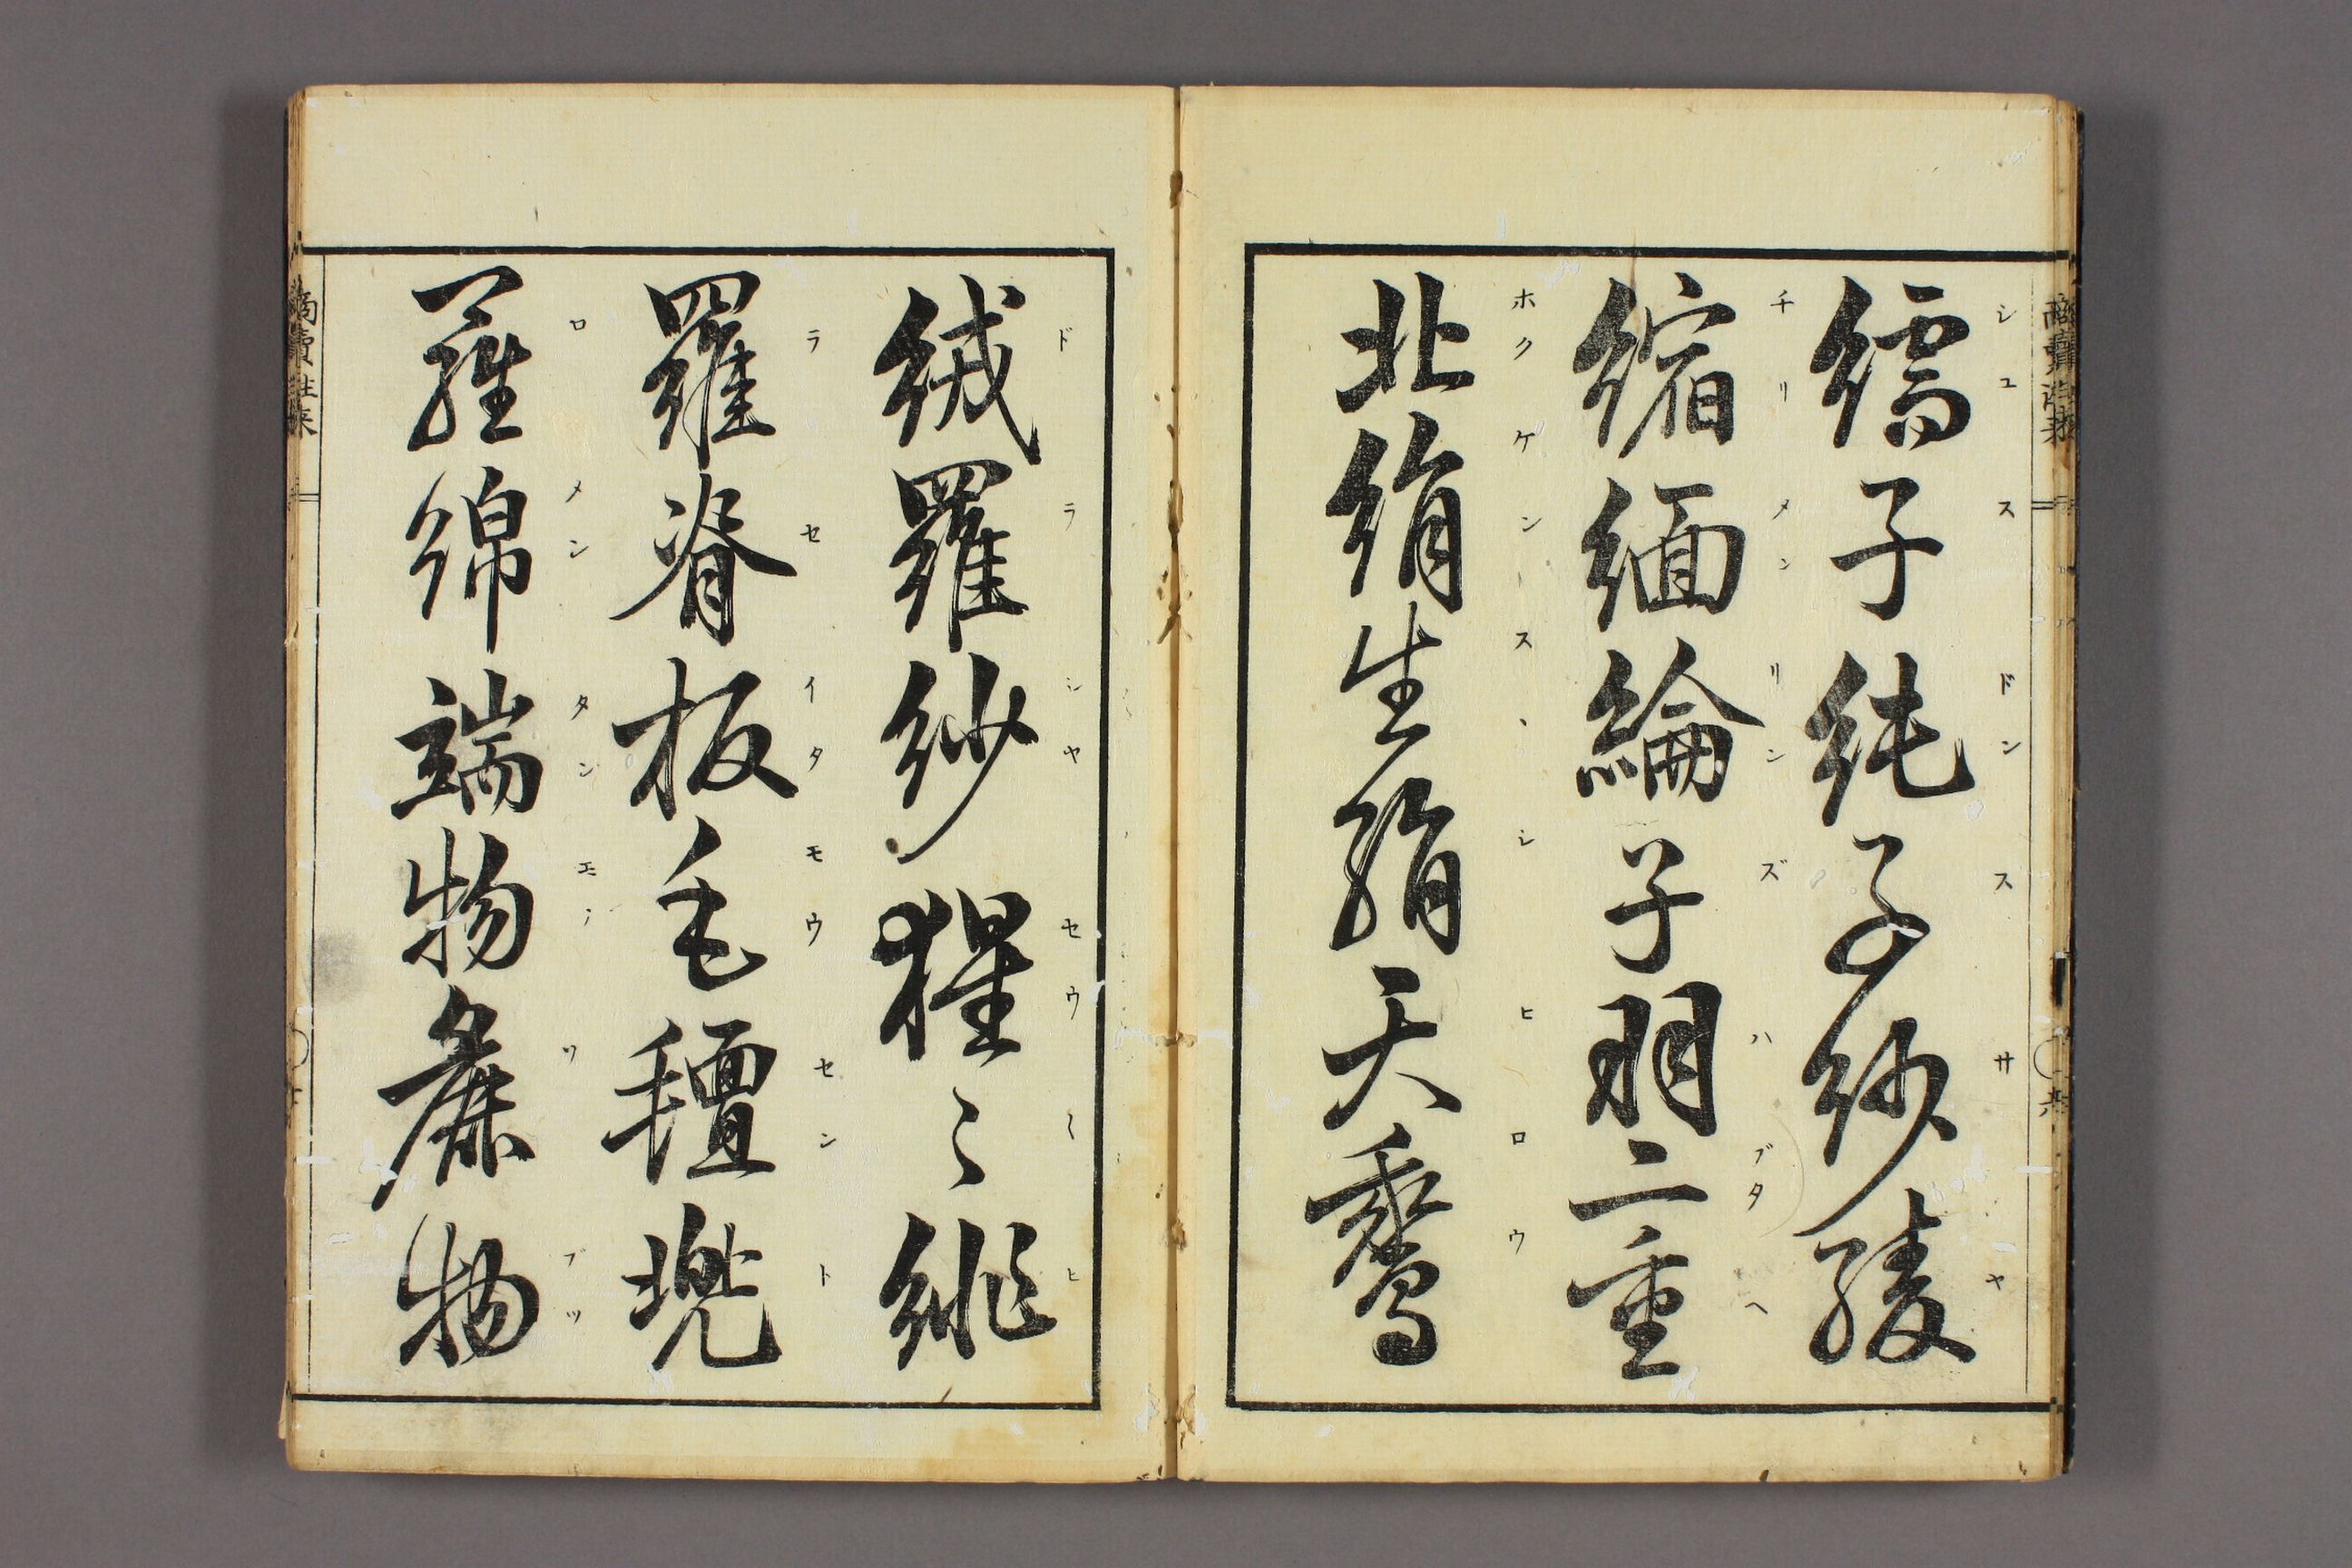 商賣往来
シユスドンスサヤ
繻子純子紗綾
チリメンリンズハブタヘ
縮緬綸子羽二重
ホクケンスヽシヒロウ
北絹生絹天鵞
ドラシヤセウ〱ヒ
絨羅紗猩〻緋
ラセイタモウセント
羅脊板毛氈兜
ロメンタン ブツ
羅綿端物麁物
商賣往来